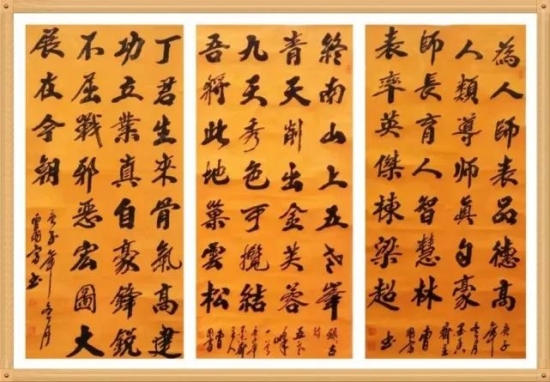 為人師表品德高
人類導師眞自豪
師長育人智慧林
表率英傑棟梁超
庚子年
書
終南山上五老峯
青天削出金芙蓉
九天秀色可攬結
吾將此地巢雲松
丁君生來骨氣高建
功立業真自豪鋒銳
不屈戰邪惡宏圖大
展在今朝
庚子年冬月
書